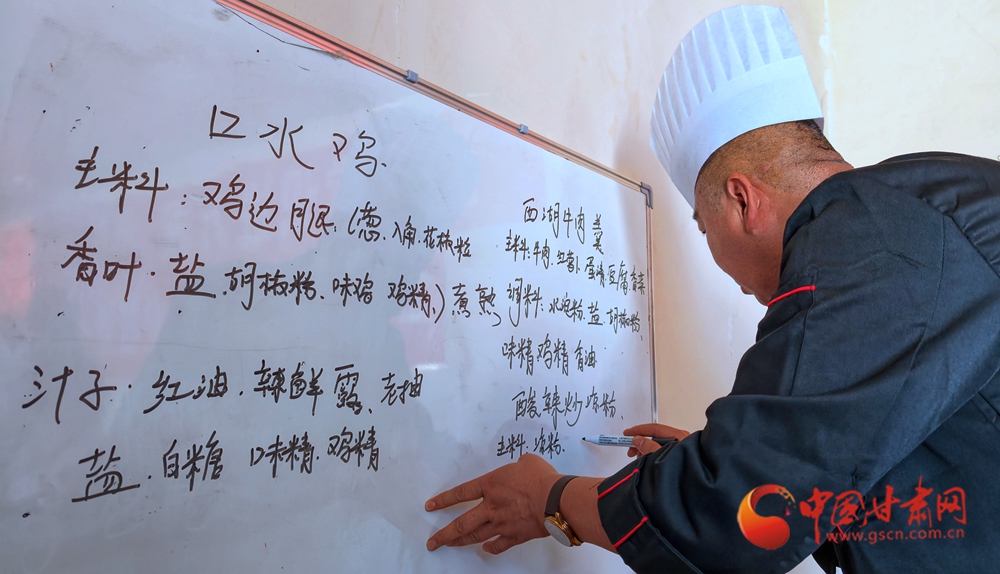 口水鸡
主料：鸡边腿（葱、八角、花椒粒
香叶、盐、胡椒粉、味精 鸡精、）煮熟
汁子、红油、辣鲜露、老抽
盐、白糖 口味精、鸡精
西湖牛肉羹
主料：牛肉、蛋清 豆腐 香菜
调料：水淀粉、盐、胡椒粉、
味精 鸡精 香油
酸辣炒粉、
主料：粉、
中国甘肃网
www.gscn.com.cn